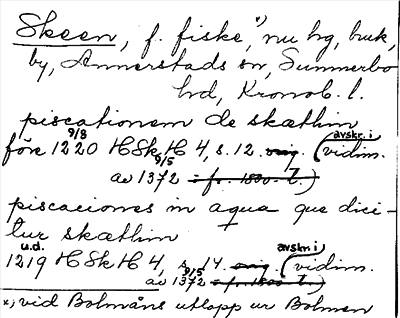 Skeen, f. fiske, x) nu hg, bruk,
by, Annerstads sn, Sunnerbo
hd, Kronob. l.
piscationem de skæthim
före 1220 HSkH 4, s. 12. orig. (avskr. i vidim.
av 9/5 1372 = f. 1800-t.)
piscaciones in aqua que dici-
tur skæthim
u.d.
1219 HSkH 4, s. 14. orig. (avskr. i vidim.
av 9/5 1372 = f. 1800-t.)
x) vid Bolmåns utlopp ur Bolmen